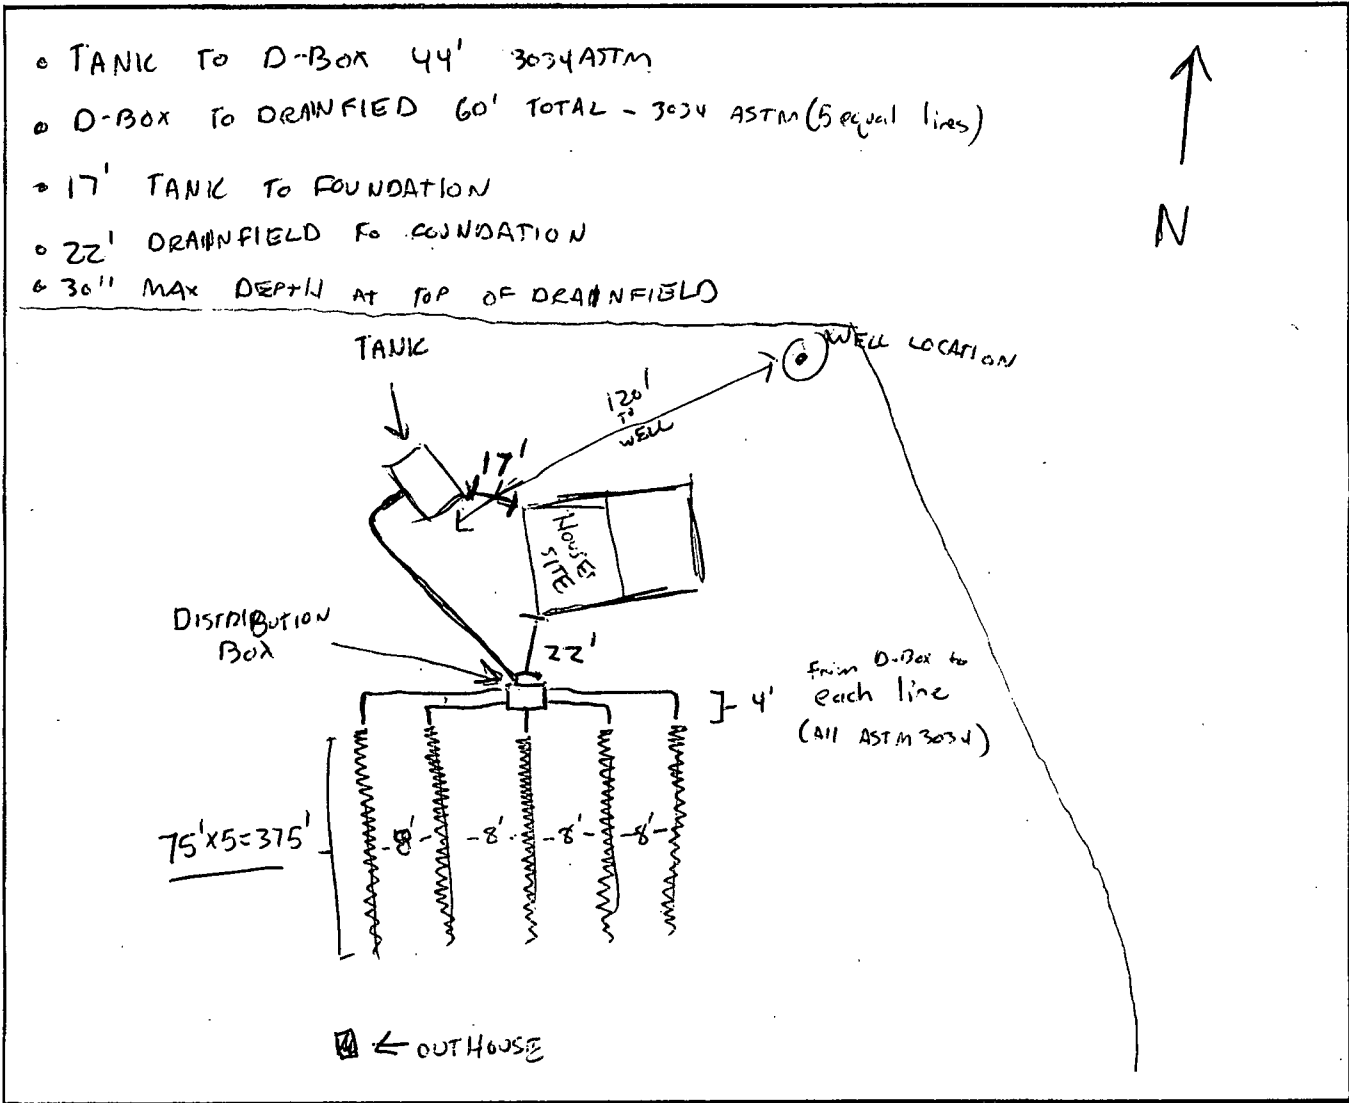 • TANK TO D-BOX 44' 3034 ASTM
• D-BOX TO DRAINFIED 60' TOTAL - 3034 ASTM (5 equal lines)
• 17' TANK TO FOUNDATION
• 22' DRAINFIELD TO FOUNDATION
• 30" MAX DEPTH AT TOP OF DRAINFIELD
N
TANK
WELL LOCATION
120'
TO
WELL
17'
HOUSE
SITE
DISTRIBUTION
BOX
22'
From D-Box to
4' each line
(All ASTM 3034)
75'x5=375'
-8'- -8'- -8'- -8'-
← OUTHOUSE